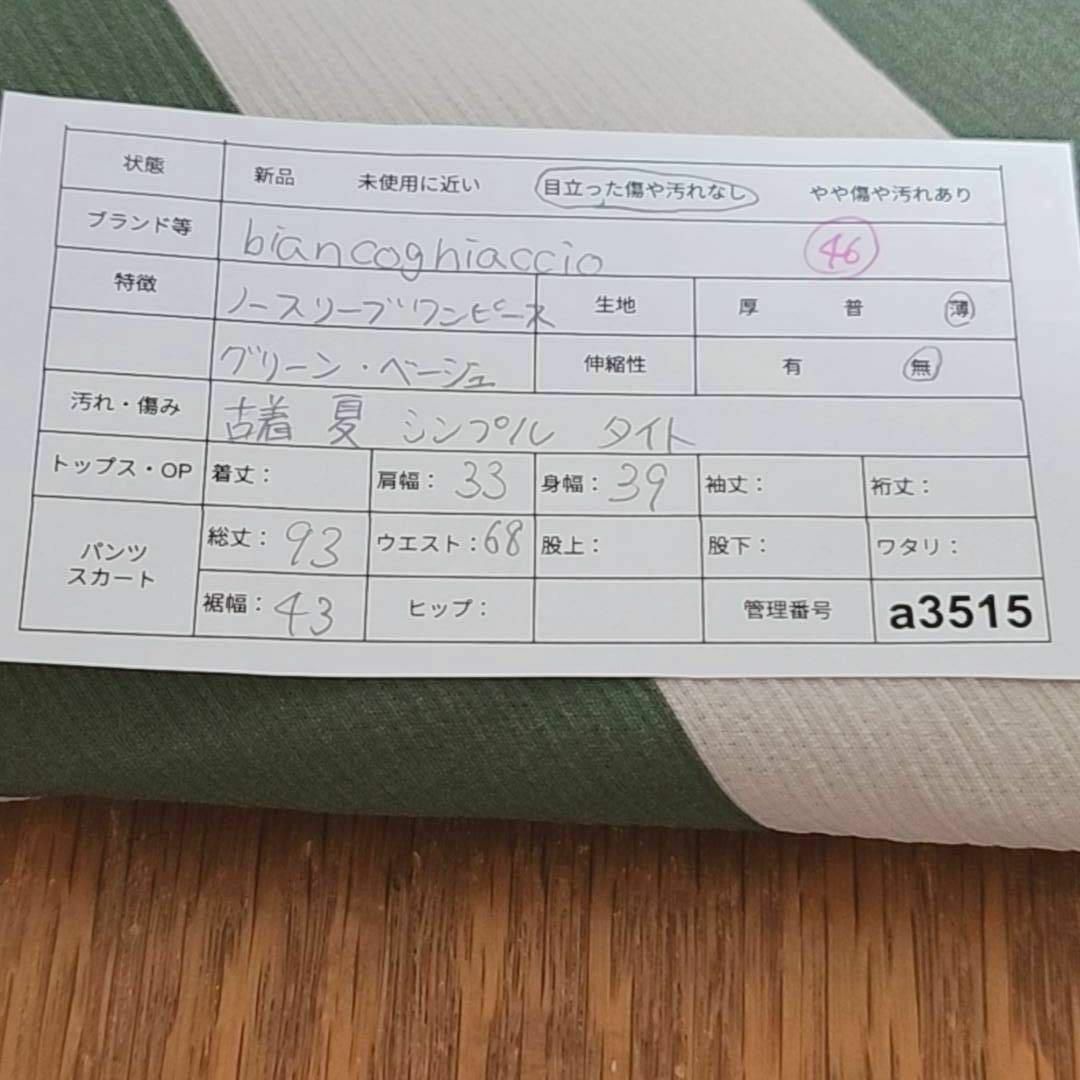 状態 新品 未使用に近い 目立った傷や汚れなし やや傷や汚れあり
ブランド等 biancoghiaccio 46
特徴 ノースリーブワンピース 生地 厚 普 薄
グリーン・ベージュ 伸縮性 有 無
汚れ・傷み 古着 夏 シンプル タイト
トップス・OP 着丈: 肩幅: 33 身幅: 39 袖丈: 裄丈:
パンツ スカート 総丈: 93 ウエスト: 68 股上: 股下: ワタリ:
裾幅: 43 ヒップ: 管理番号 a3515